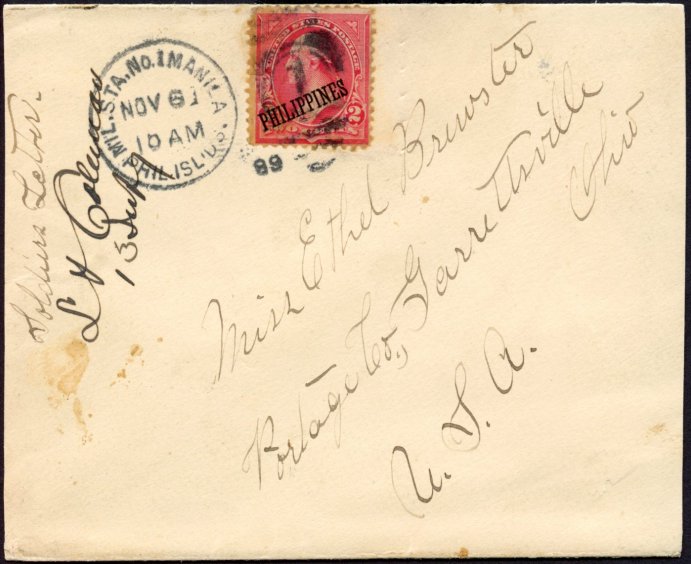 Soldiers Letter.
L H Coleman
13 Inf
MIL. STA. NO. 1 MANILA
NOV 6
10 AM
PHIL. ISL'DS.
99
UNITED STATES POSTAGE
PHILIPPINES
2
Miss Ethel Brewster
Portage Co., Garrettsville
Ohio
U. S. A.